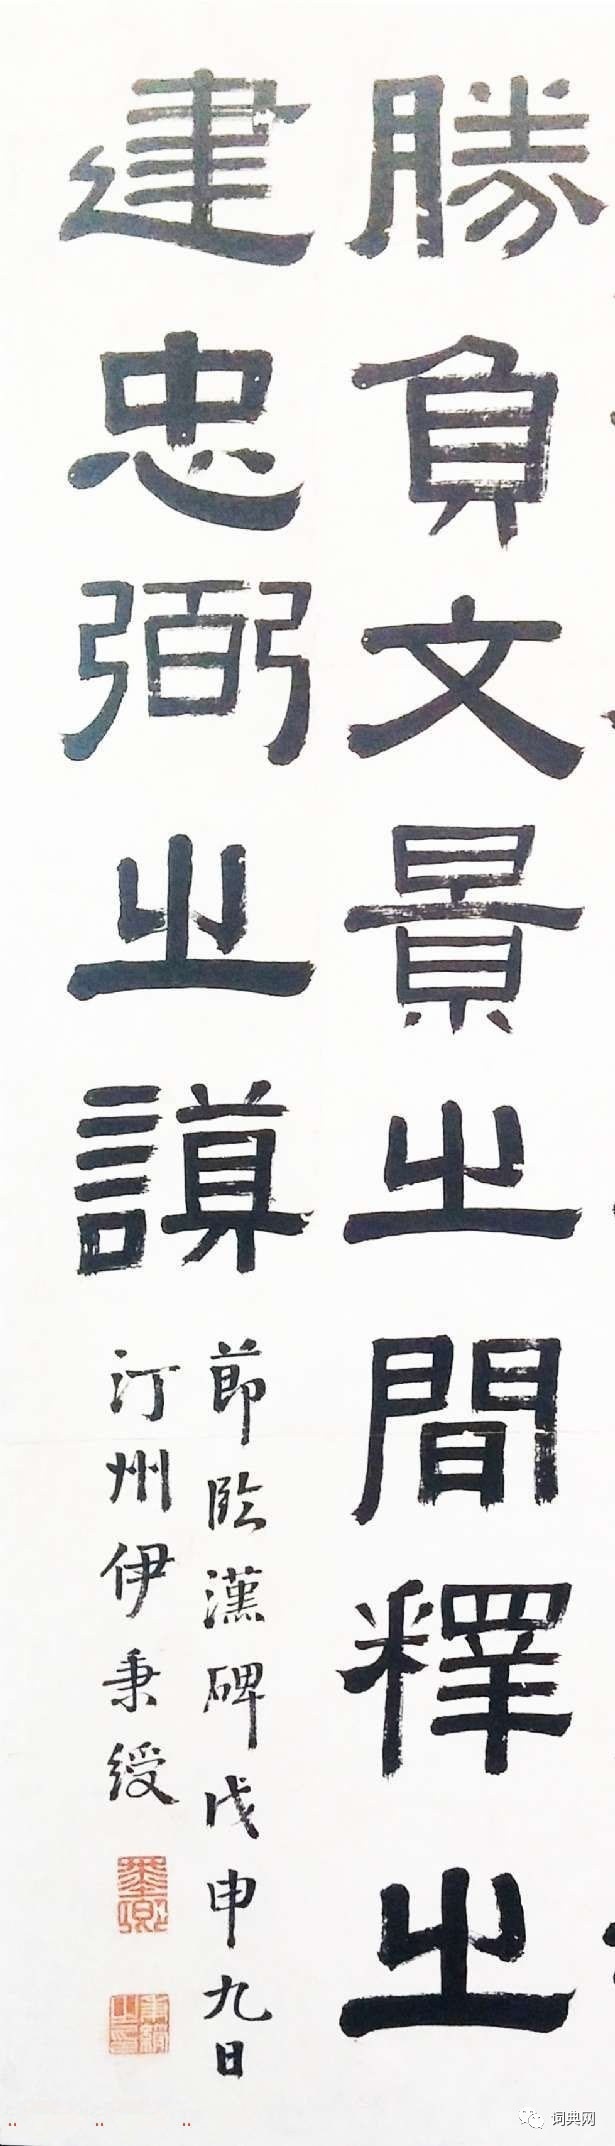 勝負文景之間釋之
建忠弼之謨
節臨漢碑戊申九日
汀州伊秉綬
墨卿
秉綬之印
词典网